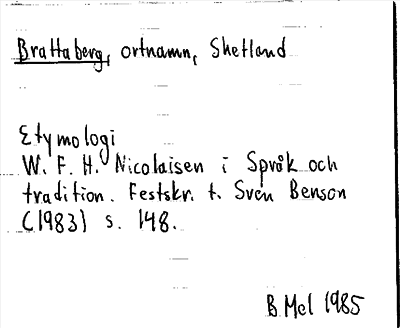 Brattaberg, ortnamn, Shetland
Etymologi
W. F. H. Nicolaisen i Språk och
tradition. Festskr. t. Sven Benson
(1983) s. 148.
B Mel 1985